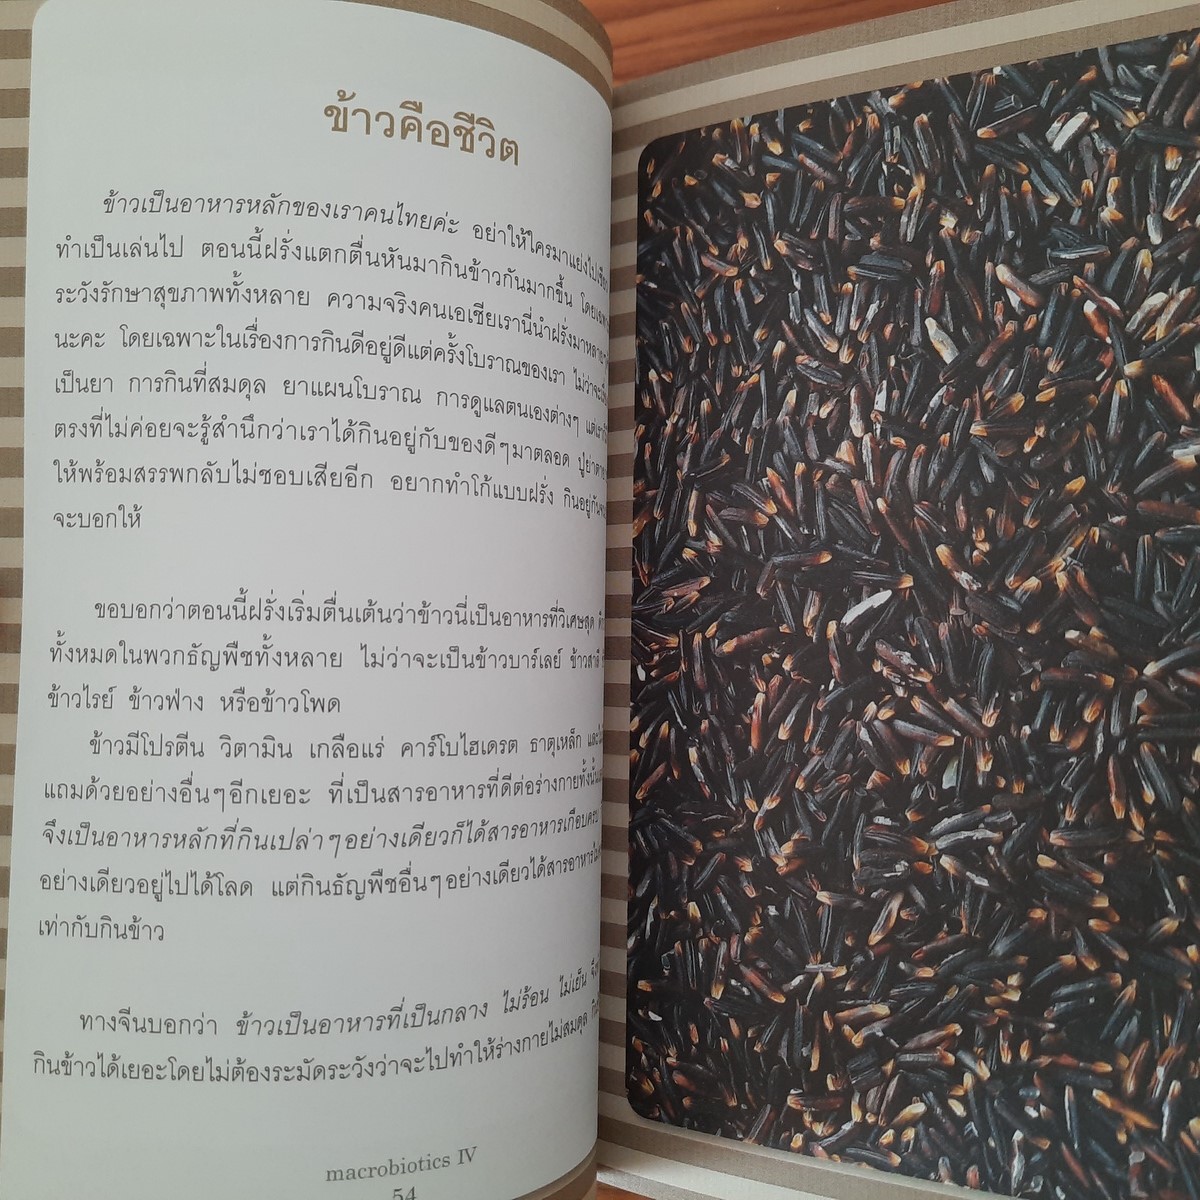 ข้าวคือชีวิต
ข้าวเป็นอาหารหลักของเราคนไทยค่ะ อย่าให้ใครมาแย่งไปเชียว
ทำเป็นเล่นไป ตอนนี้ฝรั่งแตกตื่นหันมากินข้าวกันมากขึ้น
ระวังรักษาสุขภาพทั้งหลาย ความจริงคนเอเชียเรานี่นำฝรั่งมาหลายๆ
นะคะ โดยเฉพาะในเรื่องการกินดีอยู่ดีแต่ครั้งโบราณของเรา ไม่ว่าจะ
เป็นยา การกินที่สมดุล ยาแผนโบราณ การดูแลตนเองต่างๆ
ตรงที่ไม่ค่อยจะรู้สำนึกว่าเราได้กินอยู่กับของดีๆมาตลอด
ให้พร้อมสรรพกลับไม่ชอบเสียอีก อยากทำโก้แบบฝรั่ง
จะบอกให้
ขอบอกว่าตอนนี้ฝรั่งเริ่มตื่นเต้นว่าข้าวนี่เป็นอาหารที่วิเศษสุด
ทั้งหมดในพวกธัญพืชทั้งหลาย ไม่ว่าจะเป็นข้าวบาร์เลย์ ข้าวสาลี
ข้าวไรย์ ข้าวฟ่าง หรือข้าวโพด
ข้าวมีโปรตีน วิตามิน เกลือแร่ คาร์โบไฮเดรต ธาตุเหล็ก
แถมด้วยอย่างอื่นๆอีกเยอะ ที่เป็นสารอาหารที่ดีต่อร่างกายทั้งนั้น
จึงเป็นอาหารหลักที่กินเปล่าๆอย่างเดียวก็ได้สารอาหารเกือบครบ
อย่างเดียวอยู่ไปได้โลด แต่กินธัญพืชอื่นๆอย่างเดียวได้สารอาหาร
เท่ากับกินข้าว
ทางจีนบอกว่า ข้าวเป็นอาหารที่เป็นกลาง ไม่ร้อน ไม่เย็น
กินข้าวได้เยอะโดยไม่ต้องระมัดระวังว่าจะไปทำให้ร่างกายไม่สมดุล
macrobiotics IV
54